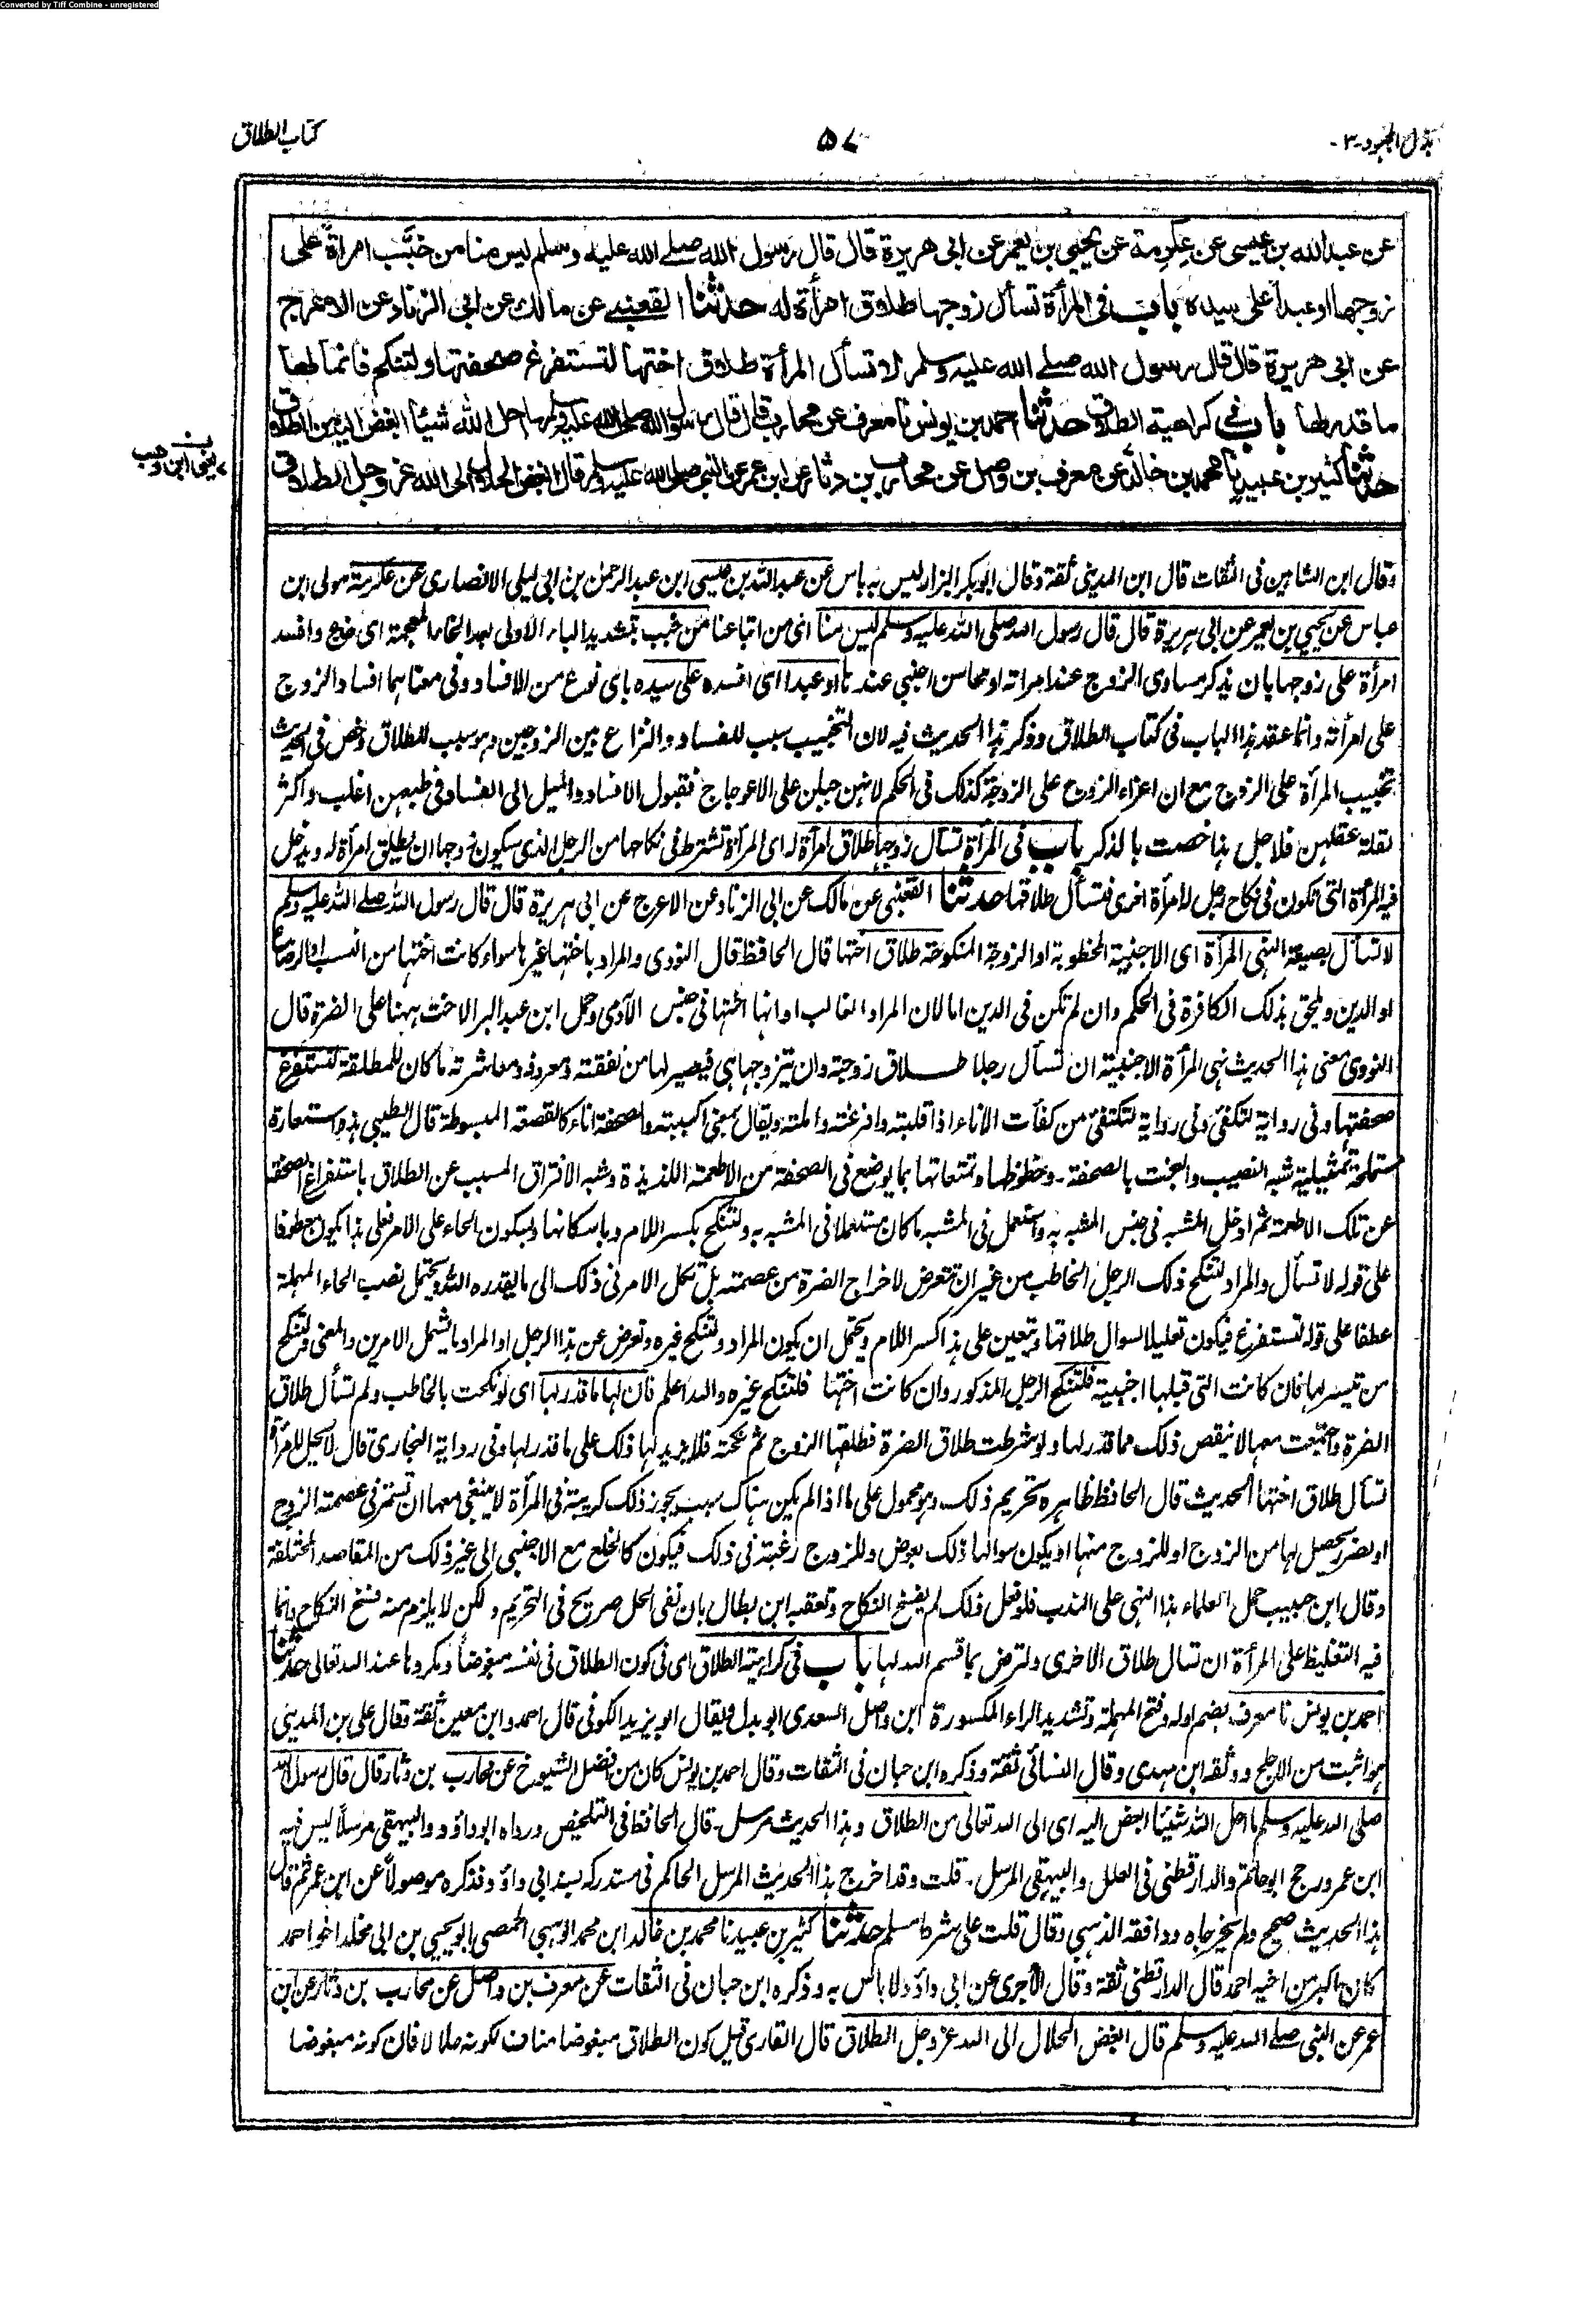 Converted by Tiff Combine - unregistered
بذل المجهود-٣-
٥٧
كتاب الطلاق
عن عبد الله بن عيسى عن عكرمة عن يحيى بن يعمر عن ابى هريرة قال قال رسول الله صلے الله عليه وسلم ليس منا من خبَّب امراةً على
زوجها او عبدا على سيده باب فى المرأة تسأل زوجها طلاق امرأة له حدثنا القعنبے عن مالك عن ابى الزناد عن الاعرج
عن ابى هريرة قال قال رسول الله صلے الله عليه وسلم لا تسأل المرأة طلاق اختها لتستفرغ صحفتها ولتنكح فانما لها
ما قدر لها باب فى كراهية الطلاق حدثنا احمد بن يونس نا معرف عن محارب قال قال رسول الله صلى الله عليه وسلم ما احل الله شيئا ابغض اليه من الطلاق
حدثنا كثير بن عبيد نا محمد بن خالد عن معرف بن واصل عن محارب بن دثار عن ابن عمر عن النبى صلى الله عليه وسلم قال ابغض الحلال الى الله عز وجل الطلاق
وقال ابن الشاهين فى الثقات قال ابن المدينى ثقة وقال ابو بكر البزار ليس به باس عن عبد الله بن عيسى ابن عبد الرحمن بن ابى ليلى الانصارى عن عكرمة مولى ابن
عباس عن يحيى بن يعمر عن ابى هريرة قال قال رسول الله صلى الله عليه وسلم ليس منا اى من اتباعنا من خبب بتشديد الباء الاولى بعد الخاء المعجمة اى خدع وافسد
امرأة على زوجها بان يذكر مساوى الزوج عند امراته او محاسن اجنبى عندها او عبدا اى افسده على سيده باى نوع من الافساد وفى معناهما افساد الزوج
على امرأته وانما عقد هذا الباب فى كتاب الطلاق وذكر هذا الحديث فيه لان التخبيب سبب للفساد والنزاع بين الزوجين وهو سبب للطلاق وخص فى الحديث
تخبيب المرأة على الزوج مع ان اغراء الزوج على الزوجة كذلك فى الحكم لانهن جبلن على الاعوجاج فقبول الافساد والميل الى الفساد فى طبعهن اغلب واكثر
لقلة عقلهن فلاجل هذا خصت بالذكر باب فى المرأة تسأل زوجها طلاق امرأة له اى المرأة تشترط فى نكاحها من الرجل الذى سيكون زوجها ان يطلق امرأة له ويدخل
فيه المرأة التى تكون فى نكاح رجل له امرأة اخرى فتسأل طلاقها حدثنا القعنبى عن مالك عن ابى الزناد عن الاعرج عن ابى هريرة قال قال رسول الله صلے الله عليه وسلم
لا تسأل بصيغة النهى المرأة اى الاجنبية المخطوبة او الزوجة المنكوحة طلاق اختها قال الحافظ قال النووى والمراد باختها غيرها سواء كانت اختها من النسب او الرضاع
او الدين ويلحق بذلك الكافرة فى الحكم وان لم تكن فى الدين اما لان المراد الغالب او انها اختها فى جنس الآدمى وحمل ابن عبد البر الاخت ههنا على الضرة قال
النووى معنى هذا الحديث نهى المرأة الاجنبية ان تسأل رجلا طلاق زوجته وان يتزوجها هى فيصير لها من نفقته ومعروفه ومعاشرته ما كان للمطلقة لتستفرغ
صحفتها وفى رواية لتكفئ وفى رواية لتكتفئ من كفأت الاناء اذا قلبته وافرغته واملته ويقال بمعنى اكببته والصحفة اناء كالقصعة المبسوطة قال الطيبى هذه استعارة
مستملحة تمثيلية شبه النصيب والبخت بالصحفة - وحظوظها وتمتعاتها بما يوضع فى الصحفة من الاطعمة اللذيذة وشبه الافتراق المسبب عن الطلاق باستفراغ الصحفة
عن تلك الاطعمة ثم ادخل المشبه فى جنس المشبه به واستعمل فى المشبه ما كان مستعملا فى المشبه به ولتنكح بكسر اللام وباسكانها وبسكون الحاء على الامر فعلى هذا يكون معطوفا
على قوله لا تسأل والمراد لتنكح ذلك الرجل الخاطب من غير ان تتعرض لاخراج الضرة من عصمته بل تكل الامر فى ذلك الى ما يقدره الله ويحتمل نصب الحاء المهملة
عطفا على قوله لتستفرغ فيكون تعليلا لسوال طلاقها ويتعين على هذا كسر اللام ويحتمل ان يكون المراد ولتنكح غيره وتعرض عن هذا الرجل او المراد ما يشمل الامرين والمعنى ولتنكح
من تيسر لها فان كانت التى قبلها اجنبية فلتنكح الرجل المذكور وان كانت اختها فلتنكح غيره والله اعلم فان لها ما قدر لها اى لو نكحت بالخاطب ولم تسأل طلاق
الضرة واجتمعت معها لا ينقص ذلك مما قدر لها ولو شرطت طلاق الضرة فطلقها الزوج ثم نكحته فلا يزيد لها ذلك على ما قدر لها وفى رواية البخارى قال لا يحل للمرأة
تسأل طلاق اختها الحديث قال الحافظ ظاهره تحريم ذلك وهو محمول على ما اذا لم يكن هناك سبب يجوز ذلك كريبة فى المرأة لا ينبغى معها ان تستمر فى عصمة الزوج
او بضرر يحصل لها من الزوج او للزوج منها او يكون سوالها ذلك بعوض وللزوج رغبة فى ذلك فيكون كالخلع مع الاجنبى الى غير ذلك من المقاصد المختلفة
وقال ابن حبيب حمل العلماء هذا النهى على الندب فلو فعل ذلك لم يفسخ النكاح وتعقبه ابن بطال بان نفى الحل صريح فى التحريم ولكن لا يلزم منه فسخ النكاح وانما
فيه التغليظ على المرأة ان تسال طلاق الاخرى ولترض بما قسم الله لها باب فى كراهية الطلاق اى فى كون الطلاق فى نفسه مبغوضاً ومكروها عند الله تعالى حدثنا
احمد بن يونس نا معرف بضم اوله وفتح المهملة وتشديد الراء المكسورة ابن واصل السعدى ابو بدل ويقال ابو يزيد الكوفى قال احمد وابن معين ثقة وقال على بن المدينى
هو اثبت من الاجلح ووثقه ابن مهدى وقال النسائى ثقة وذكره ابن حبان فى الثقات وقال احمد بن يونس كان من افضل الشيوخ عن محارب بن دثار قال قال رسول الله
صلى الله عليه وسلم ما احل الله شيئا ابغض اليه اى الى الله تعالى من الطلاق وهذا الحديث مرسل - قال الحافظ فى التلخيص ورواه ابو داؤد والبيهقى مرسلاً ليس فيه
ابن عمر ورجح ابو حاتم والدارقطنى فى العلل والبيهقى المرسل - قلت وقد اخرج هذا الحديث المرسل الحاكم فى مستدركه بسند ابى داؤد فذكره موصولاً عن ابن عمر ثم قال
هذا الحديث صحيح ولم يخرجاه ووافقه الذهبى وقال قلت على شرط مسلم حدثنا كثير بن عبيد نا محمد بن خالد ابن محمد الوهبى الحمصى ابو يحيى بن ابى مخلد اخو احمد
كان اكبر من اخيه احمد قال الدارقطنى ثقة وقال الآجرى عن ابى داؤد لا باس به وذكره ابن حبان فى الثقات عن معرف بن واصل عن محارب بن دثار عن ابن
عمر عن النبى صلے الله عليه وسلم قال ابغض الحلال الى الله عز وجل الطلاق قال القارى قيل كون الطلاق مبغوضا مناف لكونه حلالا فان كونه مبغوضا